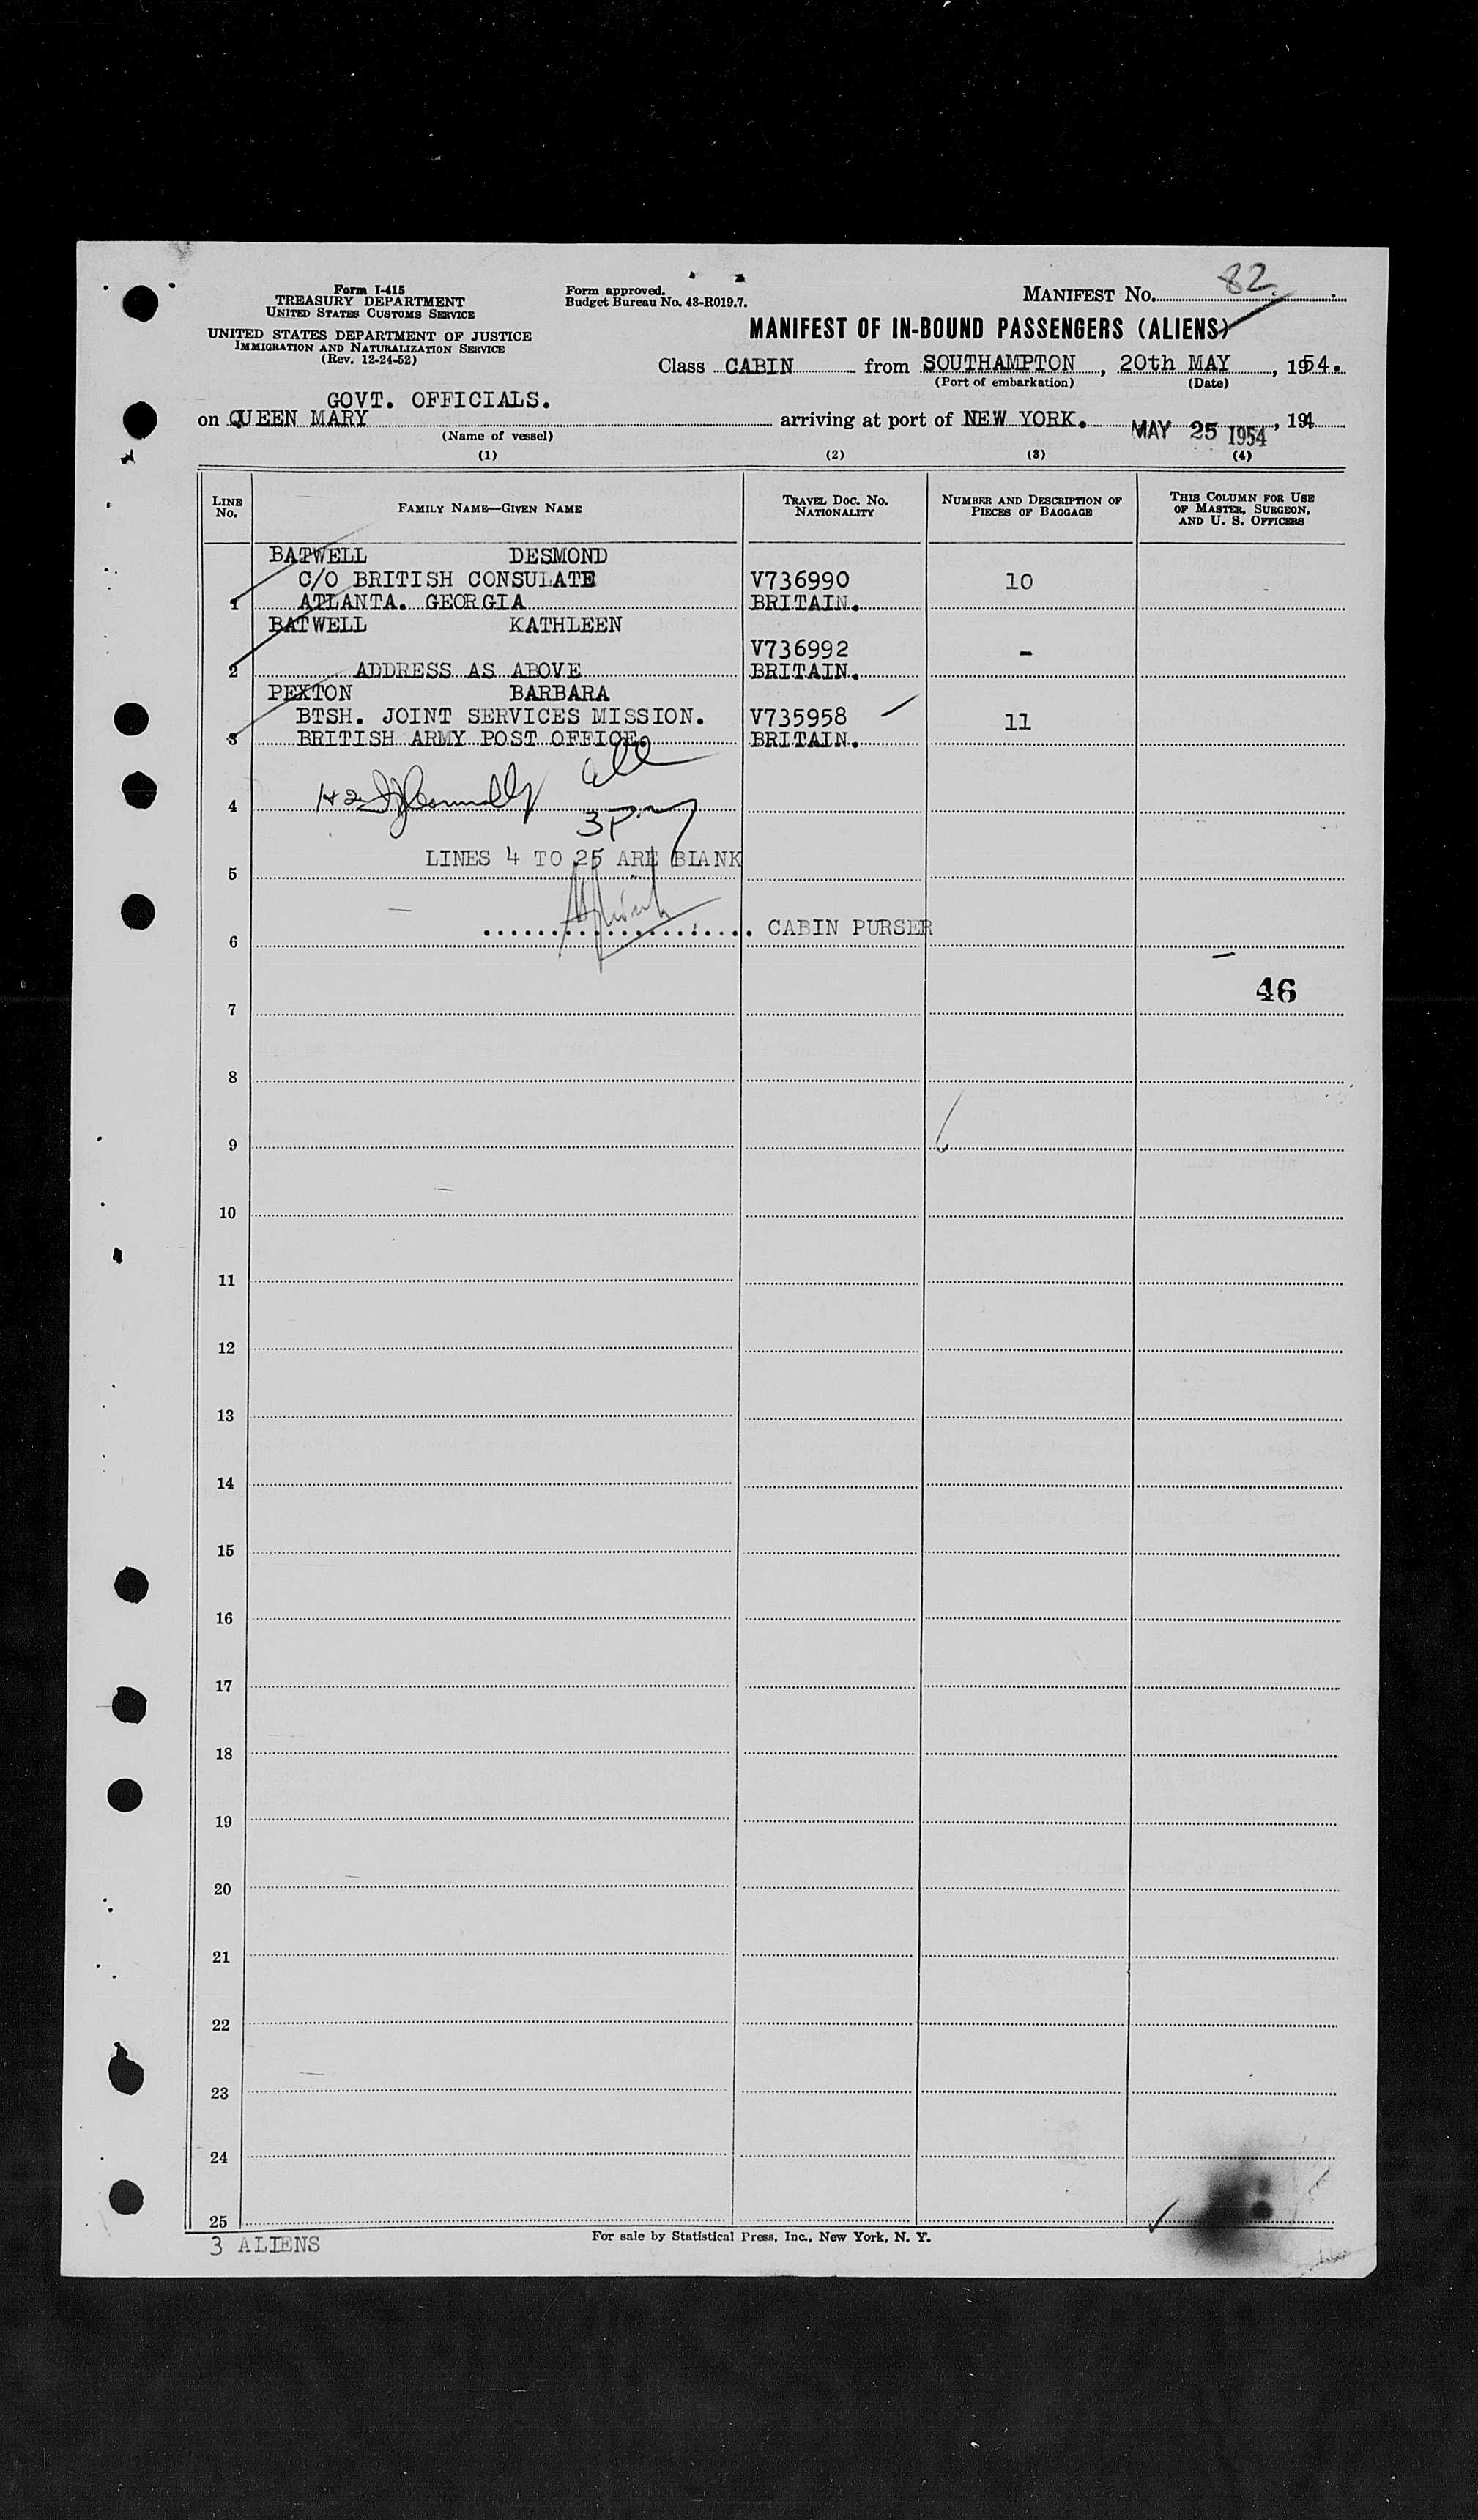 Form I-415
TREASURY DEPARTMENT
UNITED STATES CUSTOMS SERVICE
UNITED STATES DEPARTMENT OF JUSTICE
IMMIGRATION AND NATURALIZATION SERVICE
(Rev. 12-24-52)
Form approved.
Budget Bureau No. 43-R019.7.
MANIFEST No. 82
MANIFEST OF IN-BOUND PASSENGERS (ALIENS)
Class CABIN from SOUTHAMPTON, 20th MAY, 1954.
(Port of embarkation) (Date)
GOVT. OFFICIALS.
on QUEEN MARY arriving at port of NEW YORK. MAY 25 1954, 194
(Name of vessel)
(1) (2) (3) (4)
LINE No. FAMILY NAME—GIVEN NAME TRAVEL DOC. No. NATIONALITY NUMBER AND DESCRIPTION OF PIECES OF BAGGAGE THIS COLUMN FOR USE OF MASTER, SURGEON, AND U. S. OFFICERS
BATWELL DESMOND
C/O BRITISH CONSULATE V736990 10
1 ATLANTA. GEORGIA BRITAIN.
BATWELL KATHLEEN
V736992 -
2 ADDRESS AS ABOVE BRITAIN.
PEXTON BARBARA
BTSH. JOINT SERVICES MISSION. V735958 11
3 BRITISH ARMY POST OFFICE. BRITAIN.
4
LINES 4 TO 25 ARE BLANK
5
CABIN PURSER
6
46
7
8
9
10
11
12
13
14
15
16
17
18
19
20
21
22
23
24
25
3 ALIENS
For sale by Statistical Press, Inc., New York, N. Y.